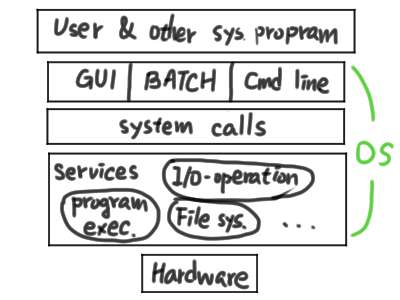 User & other sys. propram
GUI BATCH Cmd line
system calls
OS
Services I/O-operation
program exec. File sys. ...
Hardware